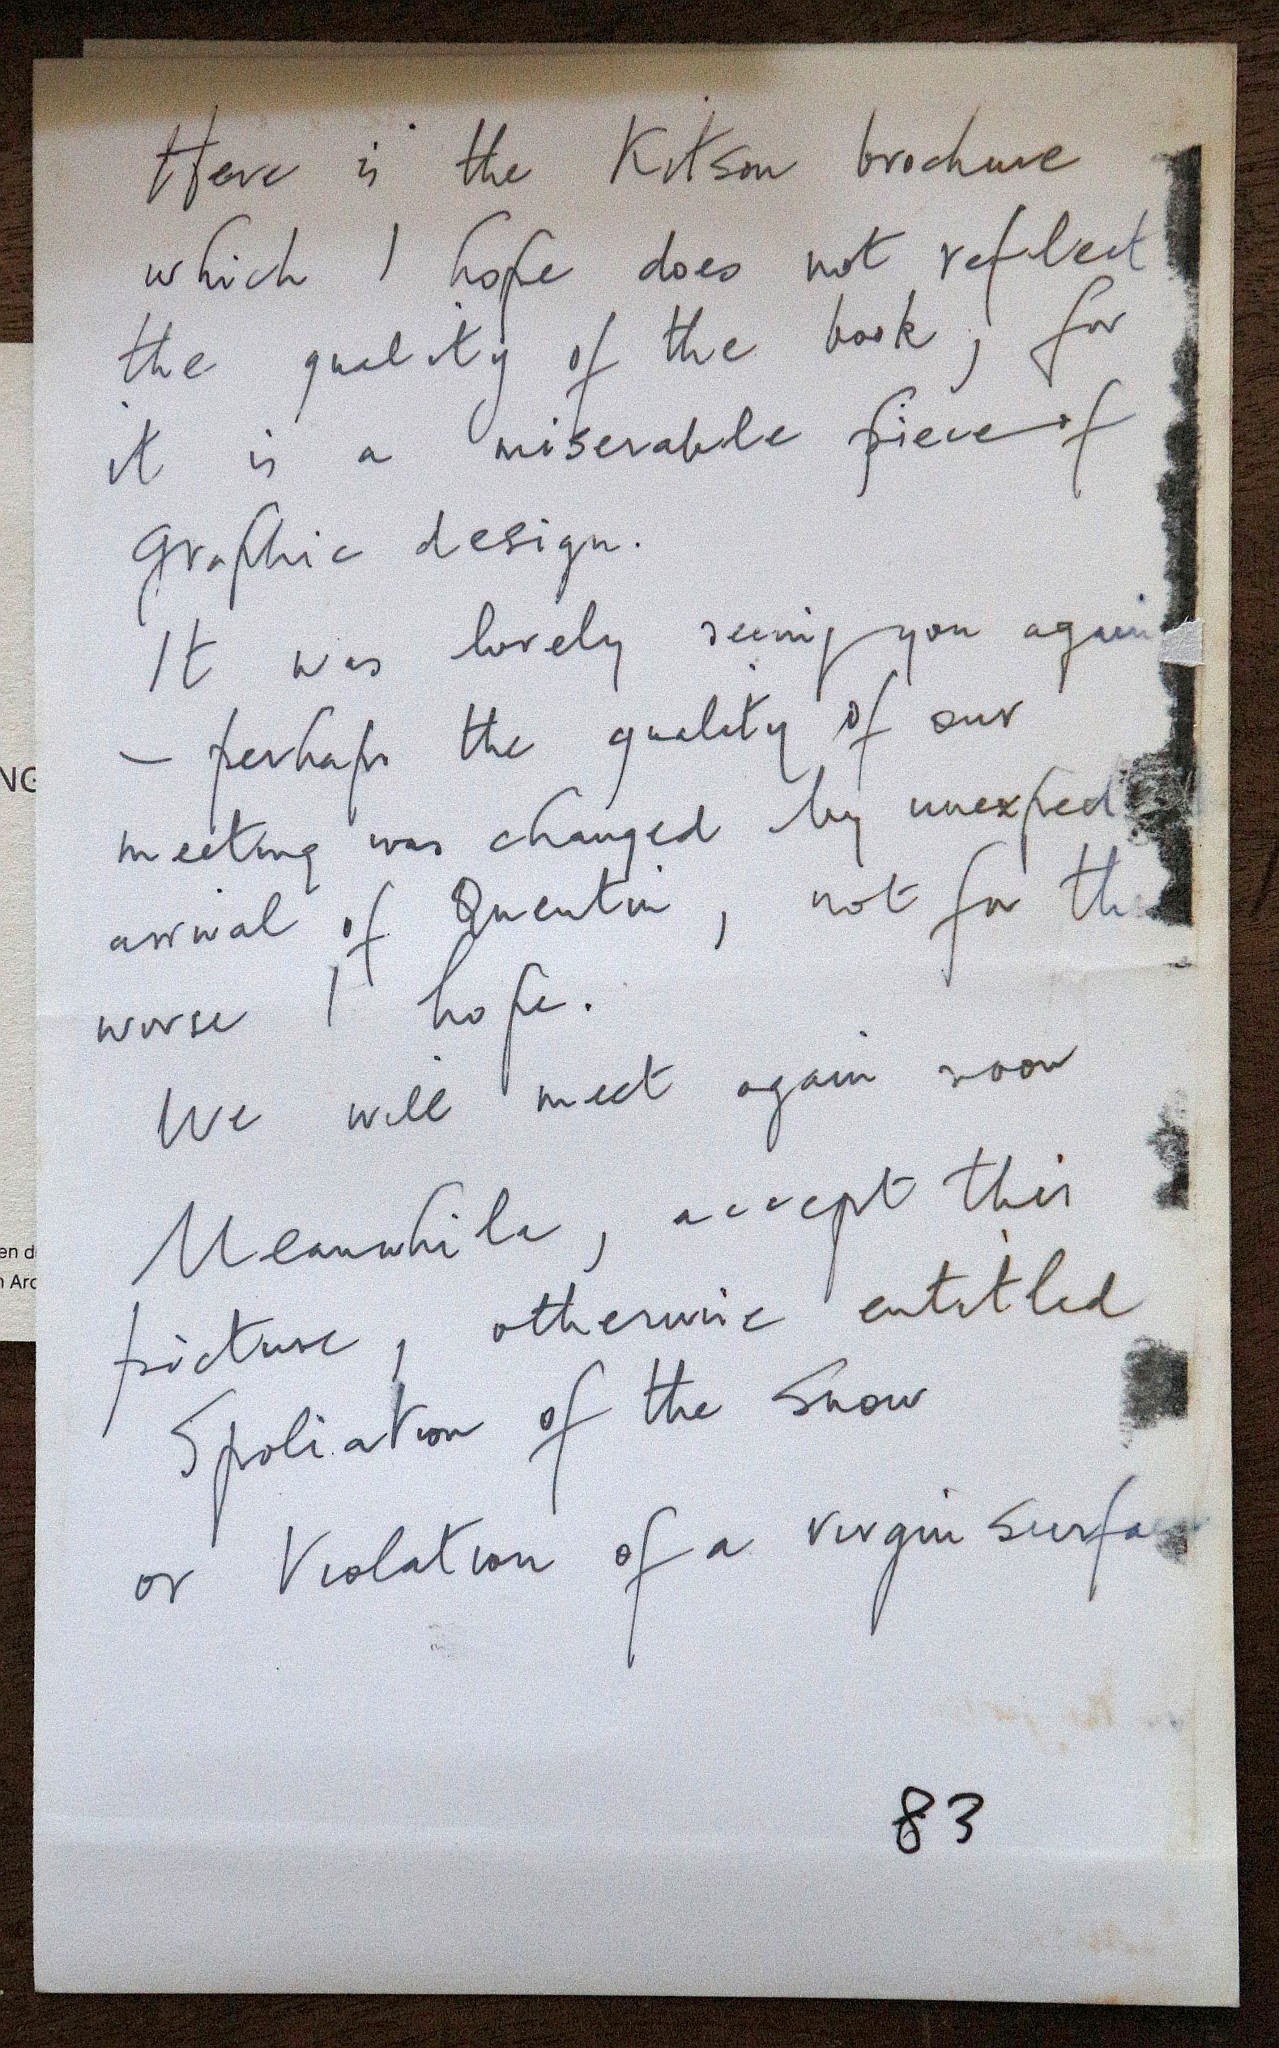 Here is the Kitson brochure
which I hope does not reflect
the quality of the book, for
it is a miserable piece of
graphic design.
It was lovely seeing you again
— perhaps the quality of our
meeting was changed by unexped
arrival of Quentin, not for the
worse I hope.
We will meet again soon
Meanwhile, accept this
picture, otherwise entitled
Spoliation of the Snow
or Violation of a virgin surfa
83
NG
en d
n Arc